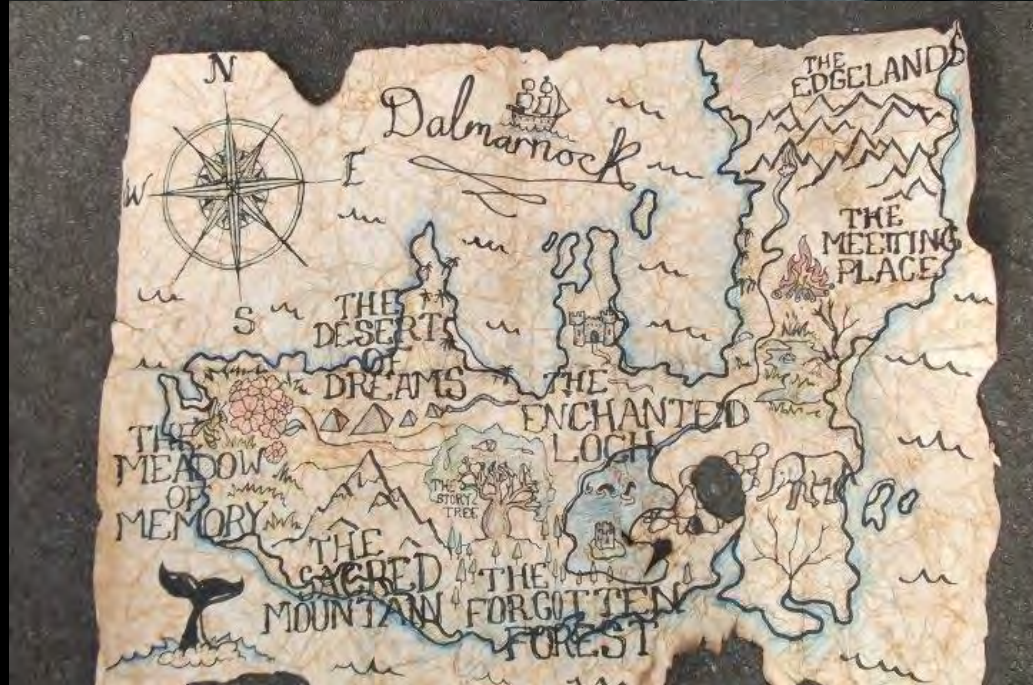 N
W
E
S
Dalmarnock
THE
EDGELANDS
THE
MEETING
PLACE
THE
DESERT
OF
DREAMS
THE
ENCHANTED
LOCH
THE
MEADOW
OF
MEMORY
THE
STORY
TREE
THE
SACRED
MOUNTAIN
THE
FORGOTTEN
FOREST